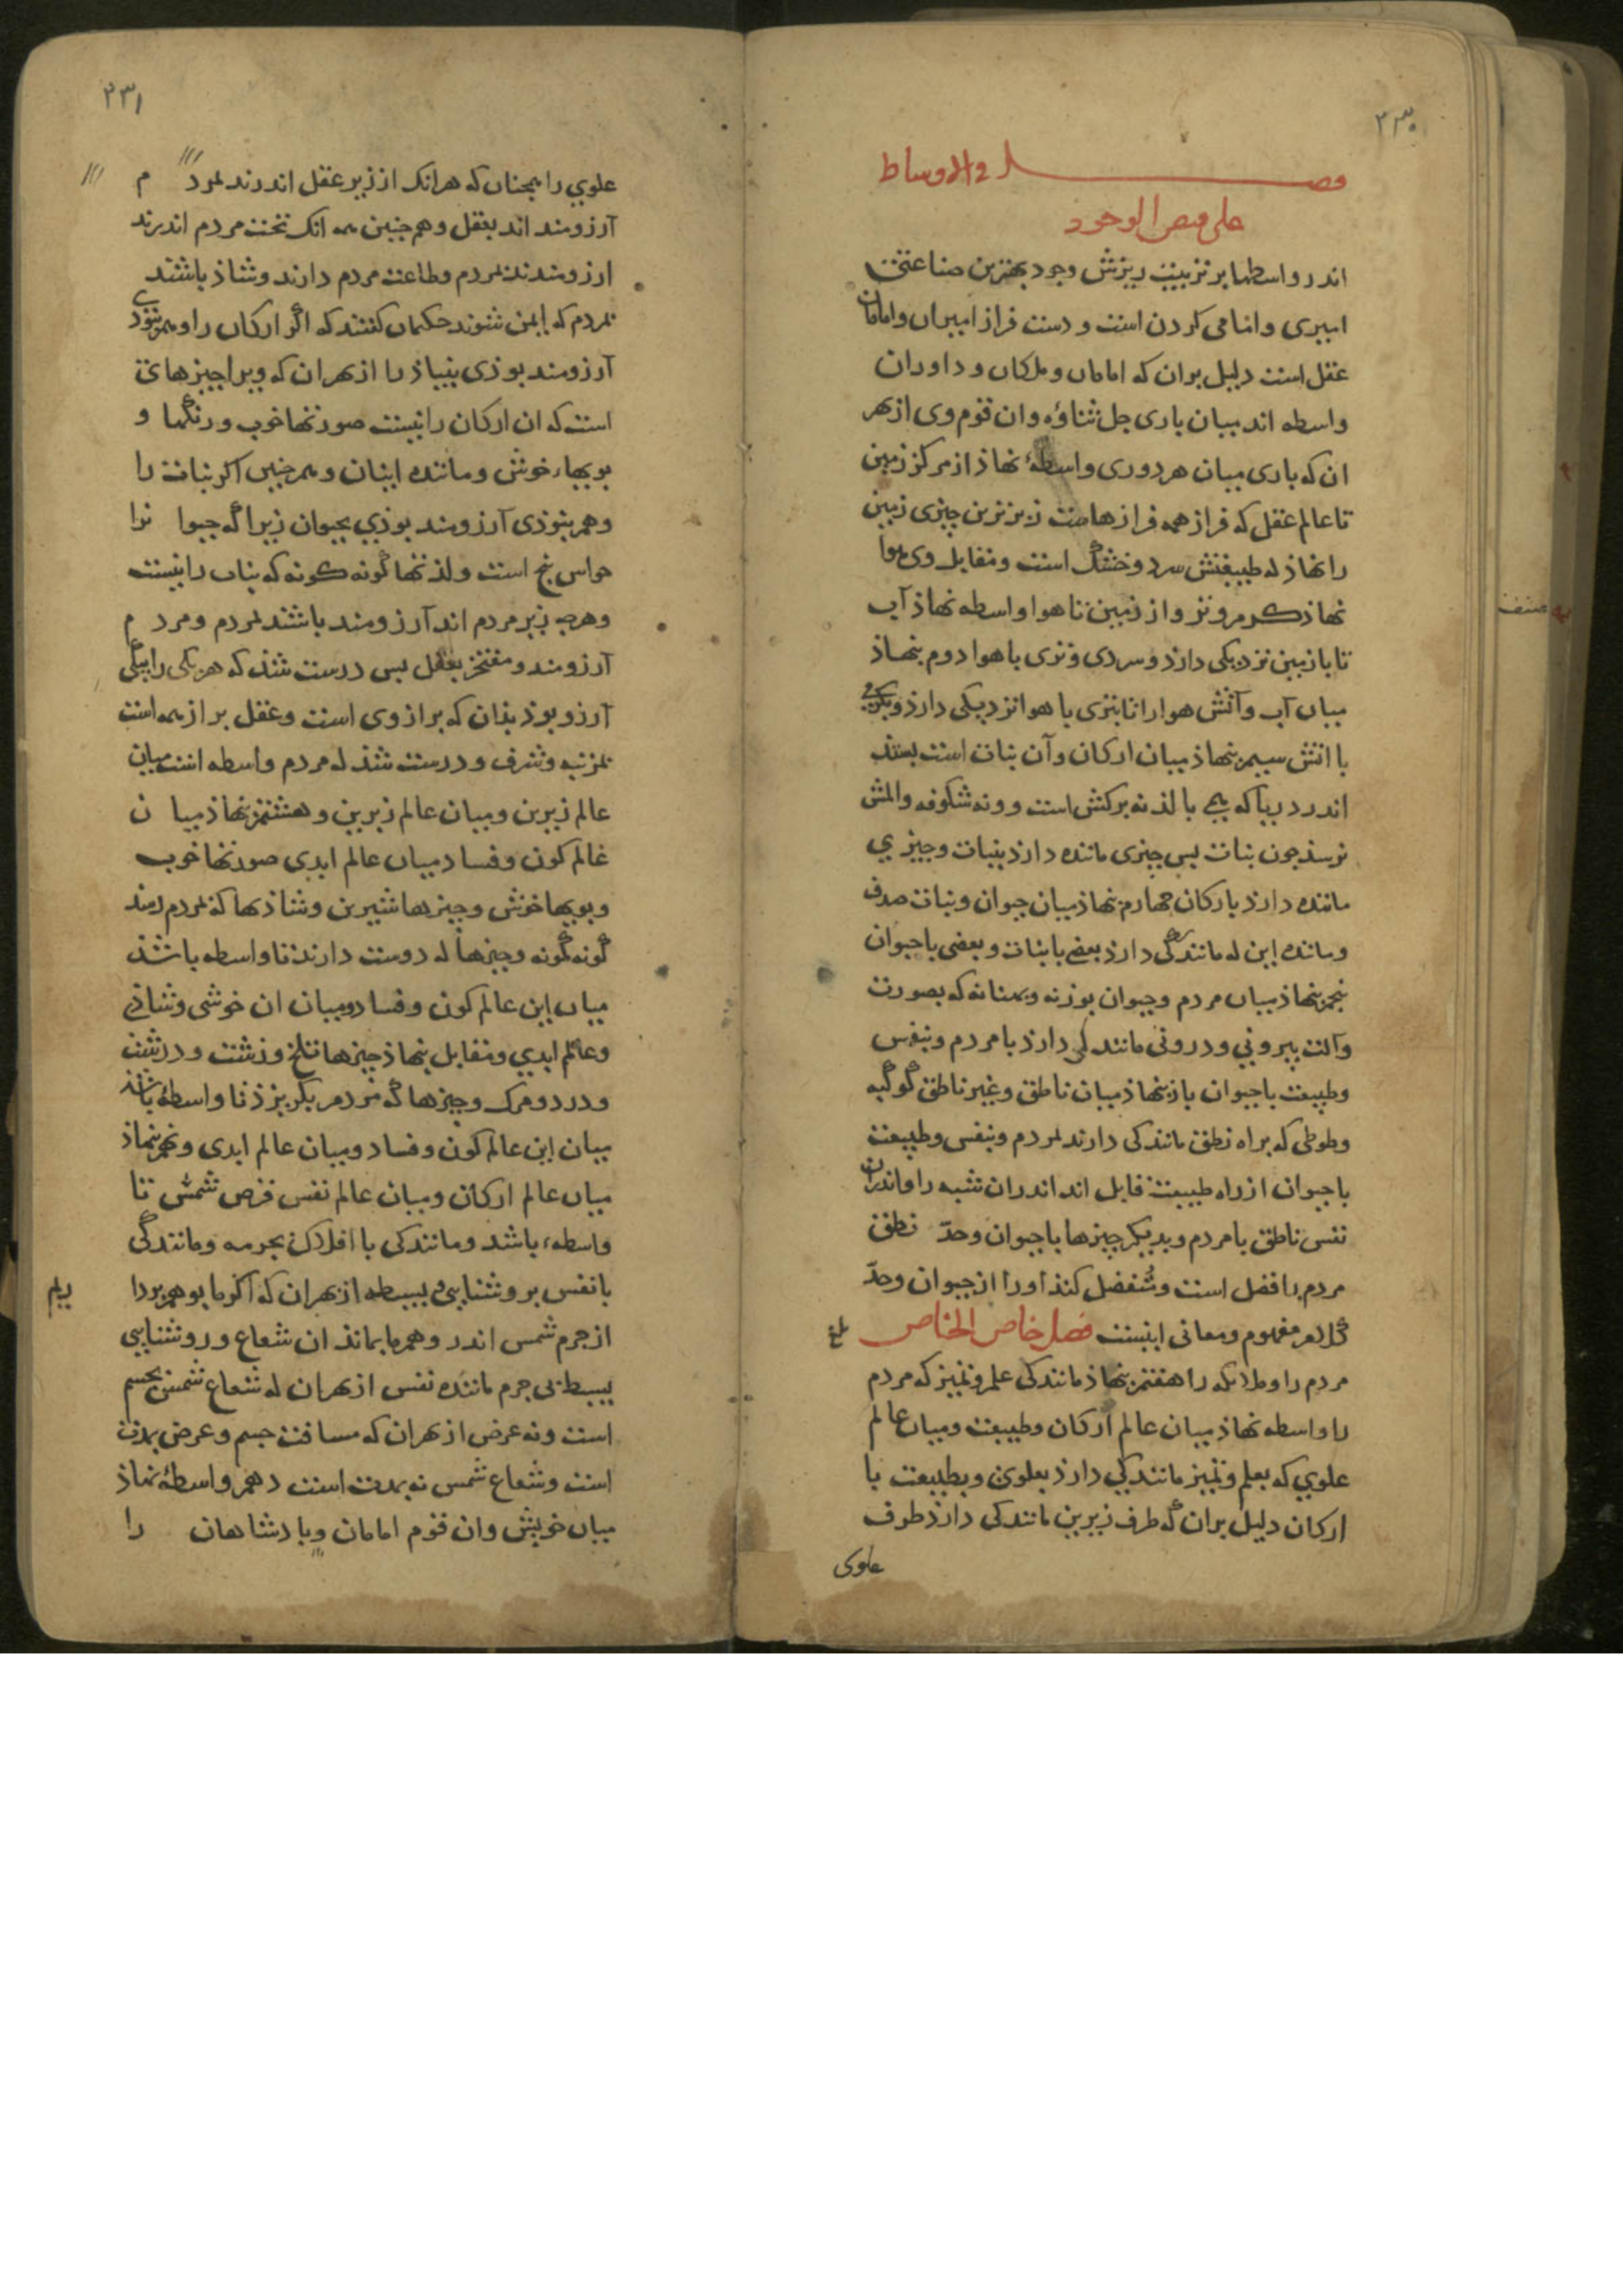 ۲۳۰
فصل و الاوساط
علی فیض الوجود
اندر واسطها بر ترتیبت ریزش وجود بهترین صناعتی
امیری وامامی کردن است و دست فراز امیران وامامان
عقل است دلیل بران که امامان و ملکان و داوران
واسطه اند میان باری جل ثناؤه وان قوم وی از بهر
ان که باری میان هر دوری واسطهٔ نهاذ از مرکز زمین
تا عالم عقل که فراز همه فرازهاست زیرترین چیزی زمین
را نهاذ که طبیعتش سرد و خشک است و مقابل وی هوا
نهاذ گرم و تر و از زمین تا هوا واسطه نهاذ آب
تا با زمین نزدیکی دارد وسردی و تری با هوا دوم بنهاذ
میان آب وآتش هوا را تا بتری با هوا نزدیکی دارذ و بگرمی
با اتش سیم بنهاذ میان ارکان وآن نبات است بسد
اندر دریا که می بالذ نه برکش است و ونه شکوفه والمش
نرسذ جون نبات بس چیزی مانده دارذ بنبات و چیزی
مانده دارذ بارکان چهارم بنهاذ میان حیوان ونبات صدف
ومانده این که مانندگی دارذ بعضی با نبات و بعضی با حیوان
پنجم بنهاذ میان مردم وحیوان بوزنه و که بصورت
وآلت بیرونی و درونی مانندگی دارذ با مردم و بنفس
وطبیعت با حیوان باز بنهاذ میان ناطق وغیر ناطق
وطوطی که براه نطق مانندگی دارند بمردم و بنفس وطبیعت
با حیوان از راه طبیعت قابل اند اندران شبه را واندران
نفس ناطق با مردم و بدیگر چیزها با حیوان وحدّ نطق
مردم را فضل است و منفصل کنذ اورا از حیوان وحدّ
کلام مفهوم ومعانی اینست فصل خاص الخاص
بلغ
مردم را وملائکه را هفتم بنهاذ مانندگی علم وتمیز که مردم
را واسطه نهاذ میان عالم ارکان وطبیعت ومیان عالم
علوی که بعلم وتمیز مانندگی دارذ بعلوی وبطبیعت با
ارکان دلیل بران که طرف زیرین مانندگی دارذ طرف
علوی
صنف
۲۳۱
علوی را همچنان که هرانک از زیر عقل اندرند بمردم
آرزومند اند بعقل و هم چنین همه انک تحت مردم اندرند
ارزومندند بمردم وطاعت مردم دارند و شاذ باشند
بمردم که ایمن شوند حکیمان کفتند که اگر ارکان را وهم بوذی
آرزومند بوذی بنبات را از بهر ان که ویرا چیزهای
است که ان ارکان را نیست صورتها خوب ورنگها و
بویهاء خوش ومانده اینان وهم چنین اکر نبات را
وهم بوذی آرزومند بوذی بحیوان زیرا که حیوانرا
حواس پنج است ولذتها گونه گونه که نبات را نیست
وهرچه زیر مردم اند آرزومند باشند بمردم ومردم
آرزومند و مفتخر بعقل بس درست شذ که هر یکی را بیکی
آرزو بوذ بذان که براز وی است وعقل براز همه است
بمرتبه وشرف ودرست شذ که مردم واسطه است میان
عالم زیرین ومیان عالم زبرین وهشتم بنهاذ میان
عالم کون وفساد ومیان عالم ابدی صورتها خوب
وبویها خوش وچیزها شیرین وشاذیها که بمردم رسذ
گونه گونه وچیزها که دوست دارند تا واسطه باشذ
میان این عالم کون وفساد ومیان ان خوشی وشاذی
وعالم ابدی ومقابل بنهاذ چیزها تلخ وزشت ودرشت
ودرد ومرک وچیزها که مردم بگریزذ تا واسطهٔ باشذ
میان این عالم کون وفساد ومیان عالم ابدی ونهم بنهاذ
میان عالم ارکان ومیان عالم نفس قرص شمس تا
واسطهء باشد ومانندگی با افلاک بجرمه ومانندگی
با نفس بروشنایی بسیطه از بهران که اکر ما بوهم بردا
از جرم شمس اندر وهم ما بماند ان شعاع وروشنایی
بسیط بی جرم ماننده نفس از بهر ان که شعاع شمس نه جسم
است ونه عرض از بهران که مسافت جسم و عرض بمدت
است وشعاع شمس نه بمدت است دهم واسطهٔ نهاذ
میان خویش وان قوم امامان وپادشاهان را